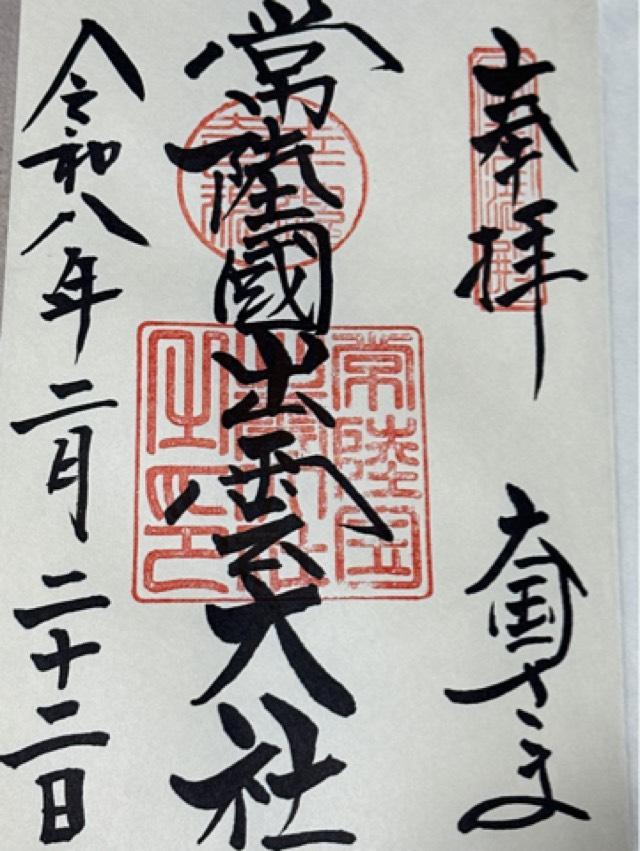 奉拝
大国さま
常陸國出雲大社
常陸国
出雲大社
令和八年二月二十二日